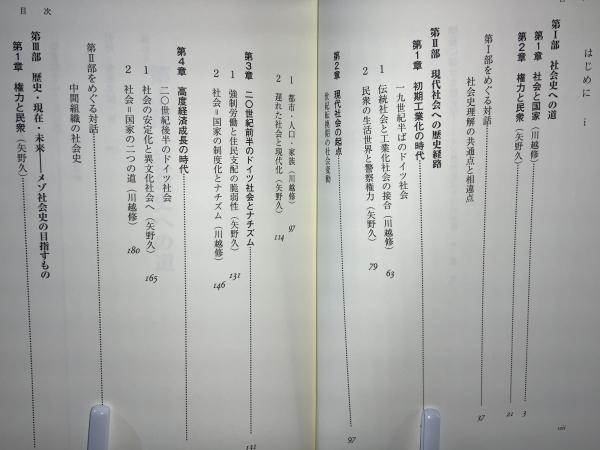 はじめに i
第Ⅰ部 社会史への道
第1章 社会と国家（川越修） 3
第2章 権力と民衆（矢野久） 21
第Ⅰ部をめぐる対話 37
社会史理解の共通点と相違点
第Ⅱ部 現代社会への歴史経路
第1章 初期工業化の時代
一九世紀半ばのドイツ社会
1 伝統社会と工業化社会の接合（川越修） 63
2 民衆の生活世界と警察権力（矢野久） 79
第2章 現代社会の起点 97
世紀転換期の社会変動
1 都市・人口・家族（川越修） 97
2 遅れた社会と現代化（矢野久） 114
第3章 二〇世紀前半のドイツ社会とナチズム 131
1 強制労働と住民支配の脆弱性（矢野久） 131
2 社会＝国家の制度化とナチズム（川越修） 146
第4章 高度経済成長の時代
二〇世紀後半のドイツ社会
1 社会の安定化と異文化社会へ（矢野久） 165
2 社会＝国家の二つの道（川越修） 180
第Ⅱ部をめぐる対話
中間組織の社会史
第Ⅲ部 歴史・現在・未来――メゾ社会史の目指すもの
第1章 権力と民衆（矢野久）
目次
viii